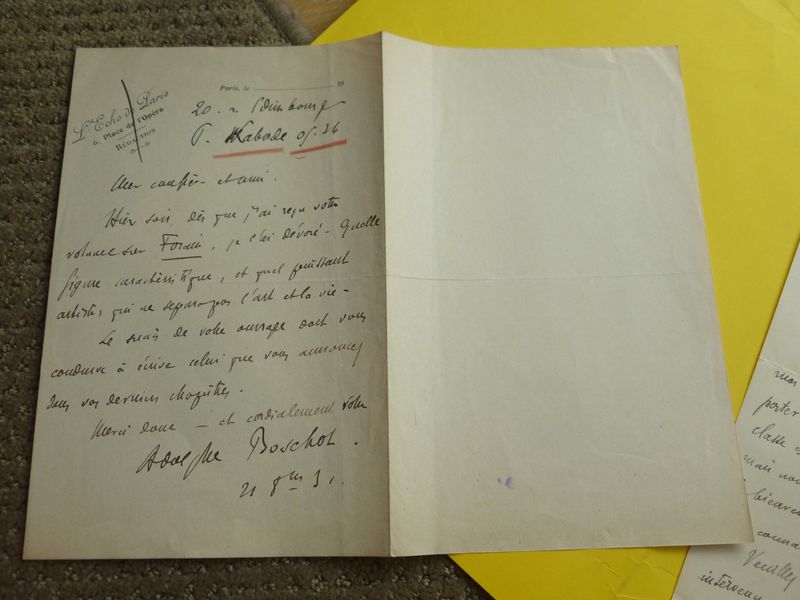 L'Echo de Paris
6, Place de l'Opéra
RÉDACTION
Paris, le 19
20. r. d'Edimbourg
T. Laborde 05.34
Cher confrère et ami.
Hier soir, dès que j'ai reçu votre
volume sur Forain, je l'ai dévoré - Quelle
figure caractéristique, et quel puissant
artiste, qui ne sépara pas l'art et la vie -
Le succès de votre ouvrage doit vous
conduire à écrire celui que vous annoncez
dans vos derniers chapitres.
Merci donc - et cordialement votre
Adolphe Boschot.
21 31.
porter
classe
mais
Veuillez